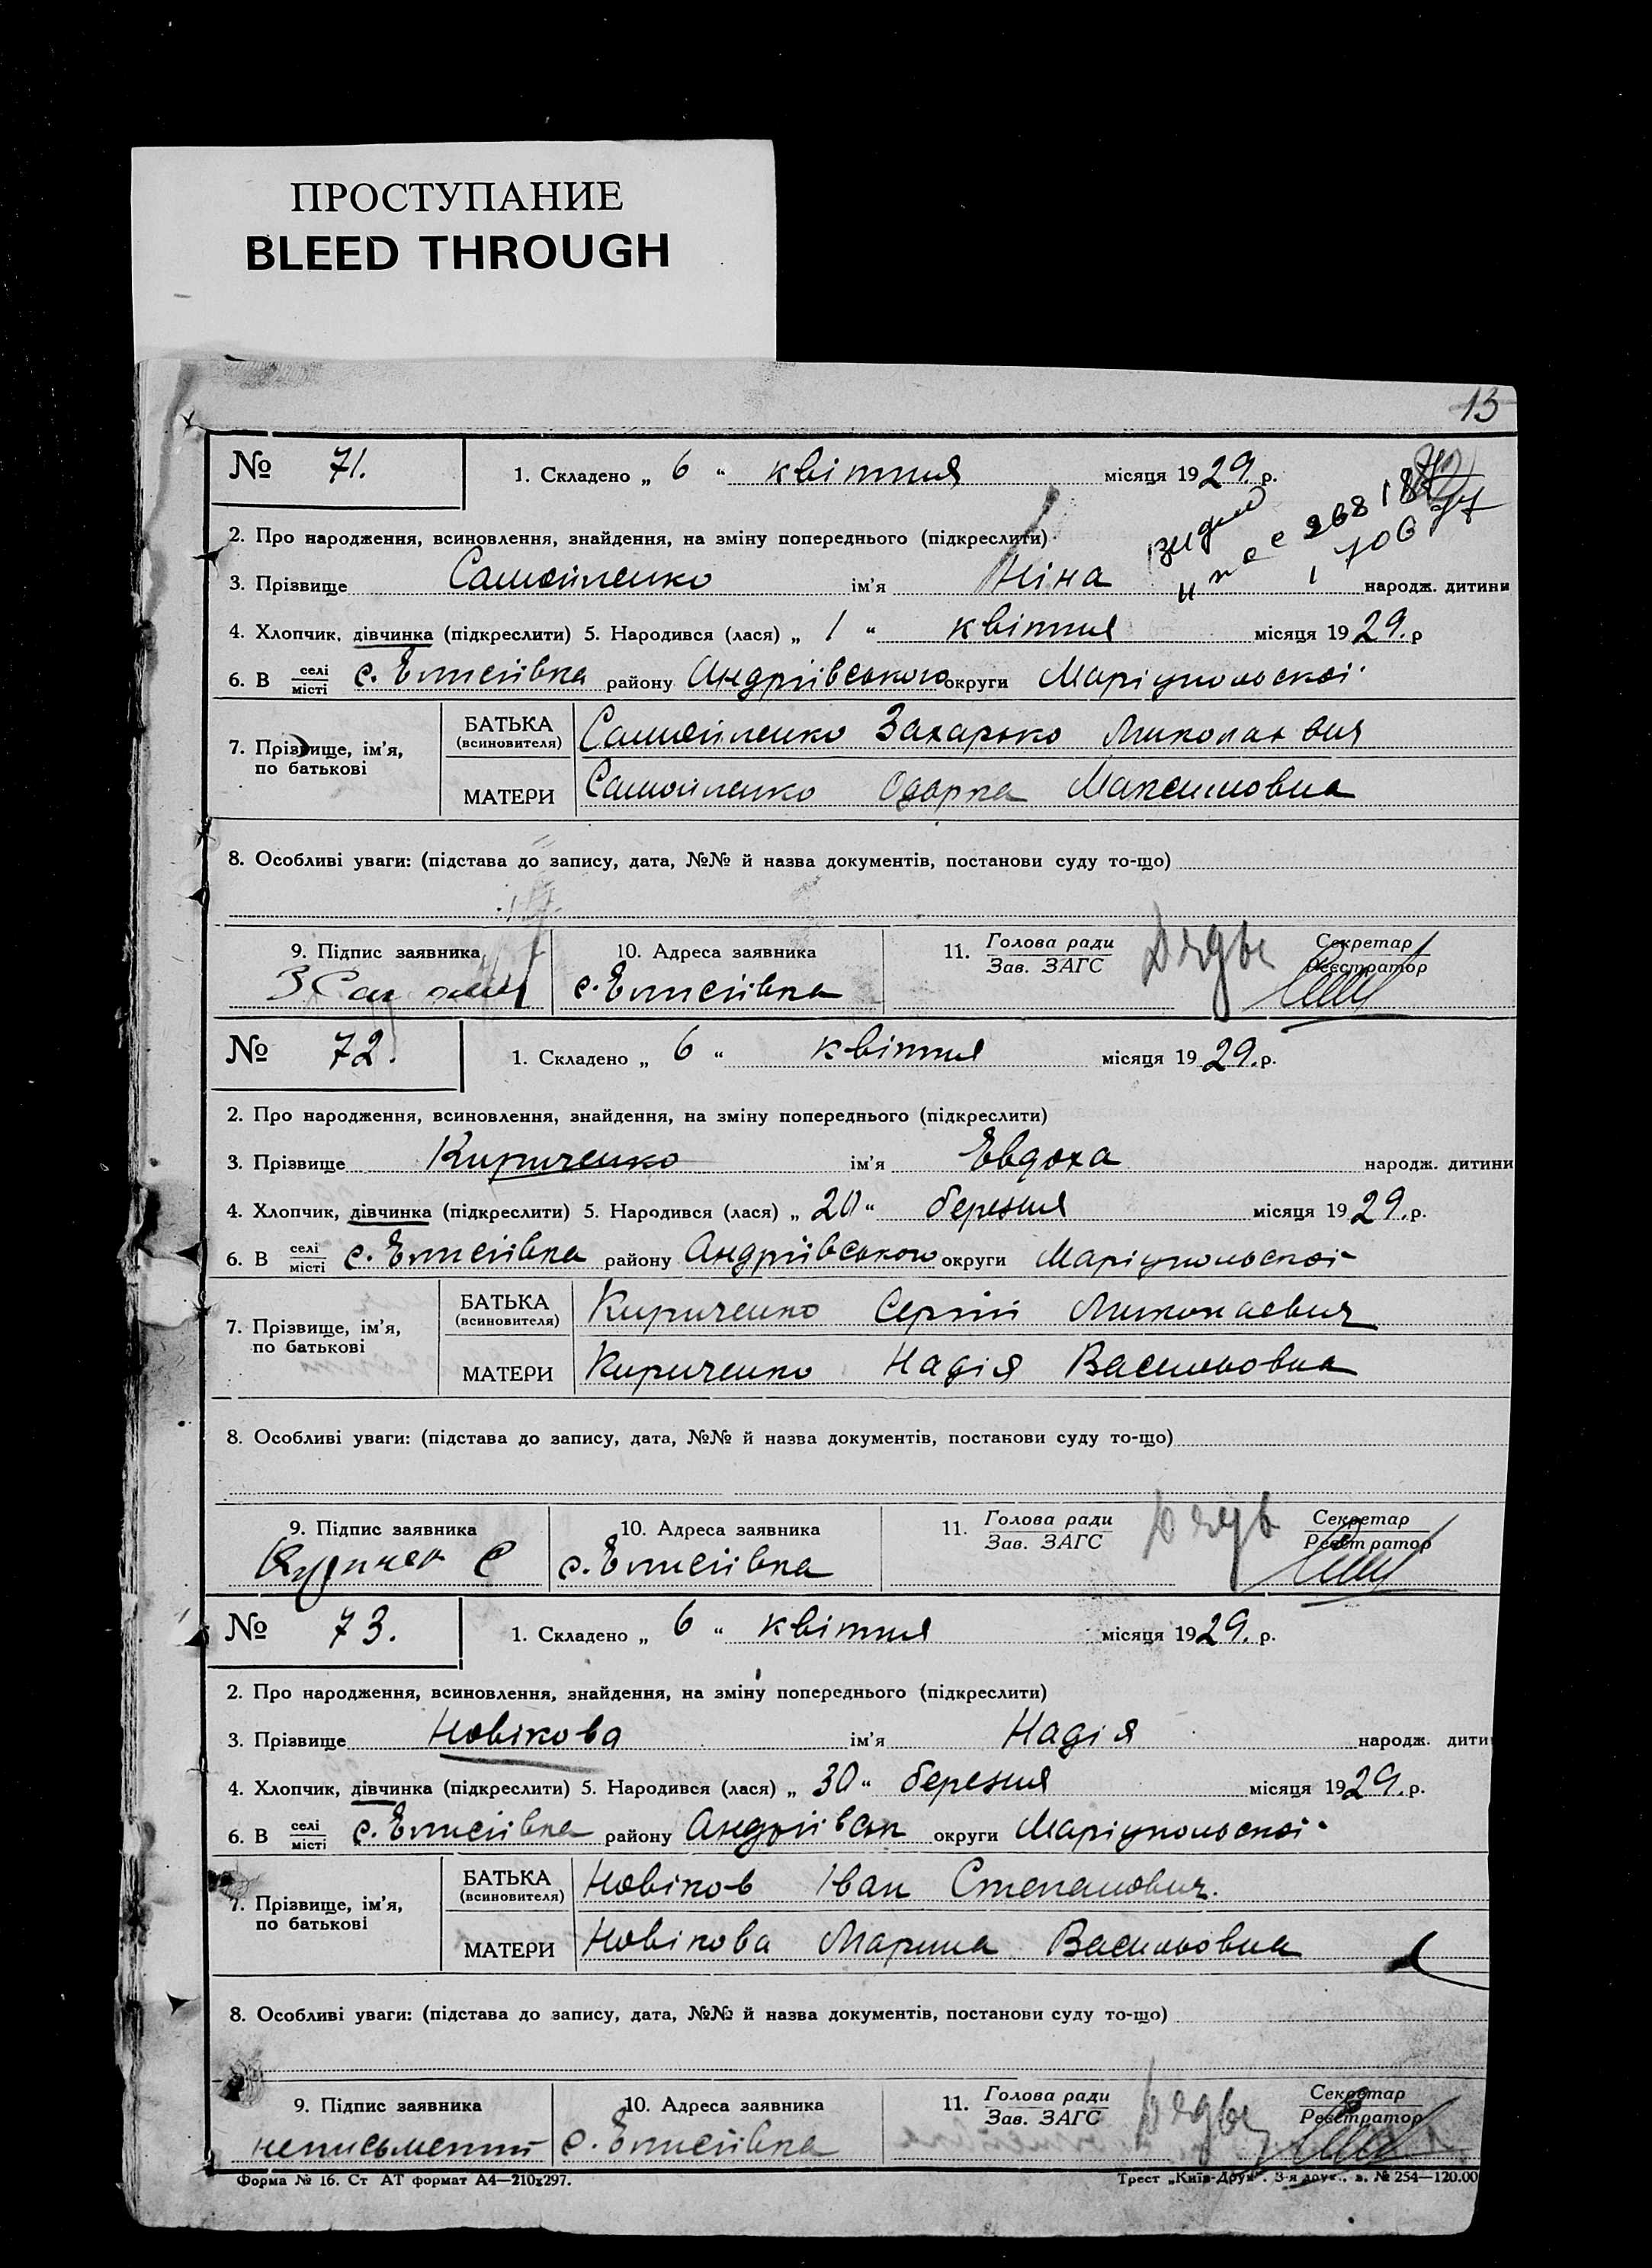 ПРОСТУПАНИЕ
BLEED THROUGH
13
№ 71. 1. Складено „ 6 “ квітня місяця 1929 р.
2. Про народження, всиновлення, знайдення, на зміну попереднього (підкреслити)
3. Прізвище Самойленко ім’я Ніна народж. дитини
4. Хлопчик, дівчинка (підкреслити) 5. Народився (лася) „ 1 “ квітня місяця 1929. р
6. В селі місті с. Елисеївка району Андріївського округи Маріупольскої
7. Прізвище, ім’я, по батькові
БАТЬКА (всиновителя) Самойленко Захарько Миколаєвич
МАТЕРИ Самойленко Одарка Максимовна
8. Особливі уваги: (підстава до запису, дата, №№ й назва документів, постанови суду то-що)
9. Підпис заявника 10. Адреса заявника 11. Голова ради Зав. ЗАГС Секретар Реєстратор
с. Елисеївка
№ 72. 1. Складено „ 6 “ квітня місяця 1929. р.
2. Про народження, всиновлення, знайдення, на зміну попереднього (підкреслити)
3. Прізвище Кириченко ім’я Евдоха народж. дитини
4. Хлопчик, дівчинка (підкреслити) 5. Народився (лася) „ 20 “ березня місяця 1929. р.
6. В селі місті с. Елисеївка району Андріївського округи Маріупольскої
7. Прізвище, ім’я, по батькові
БАТЬКА (всиновителя) Кириченко Сергій Миколаевич
МАТЕРИ Кириченко Надія Васильовна
8. Особливі уваги: (підстава до запису, дата, №№ й назва документів, постанови суду то-що)
9. Підпис заявника 10. Адреса заявника 11. Голова ради Зав. ЗАГС Секретар Реєстратор
с. Елисеївка
№ 73. 1. Складено „ 6 “ квітня місяця 1929. р.
2. Про народження, всиновлення, знайдення, на зміну попереднього (підкреслити)
3. Прізвище Новікова ім’я Надія народж. дити
4. Хлопчик, дівчинка (підкреслити) 5. Народився (лася) „ 30 “ березня місяця 1929. р.
6. В селі місті с. Елисеївка району Андріївськ округи Маріупольскої
7. Прізвище, ім’я, по батькові
БАТЬКА (всиновителя) Новіков Іван Степанович.
МАТЕРИ Новікова Марина Васильовна
8. Особливі уваги: (підстава до запису, дата, №№ й назва документів, постанови суду то-що)
9. Підпис заявника 10. Адреса заявника 11. Голова ради Зав. ЗАГС Секретар Реєстратор
неписьменний с. Елисеївка
Форма № 16. Ст АТ формат А4—210х297. Трест „Київ-Друк“. 3-я друк., в. № 254—120.00